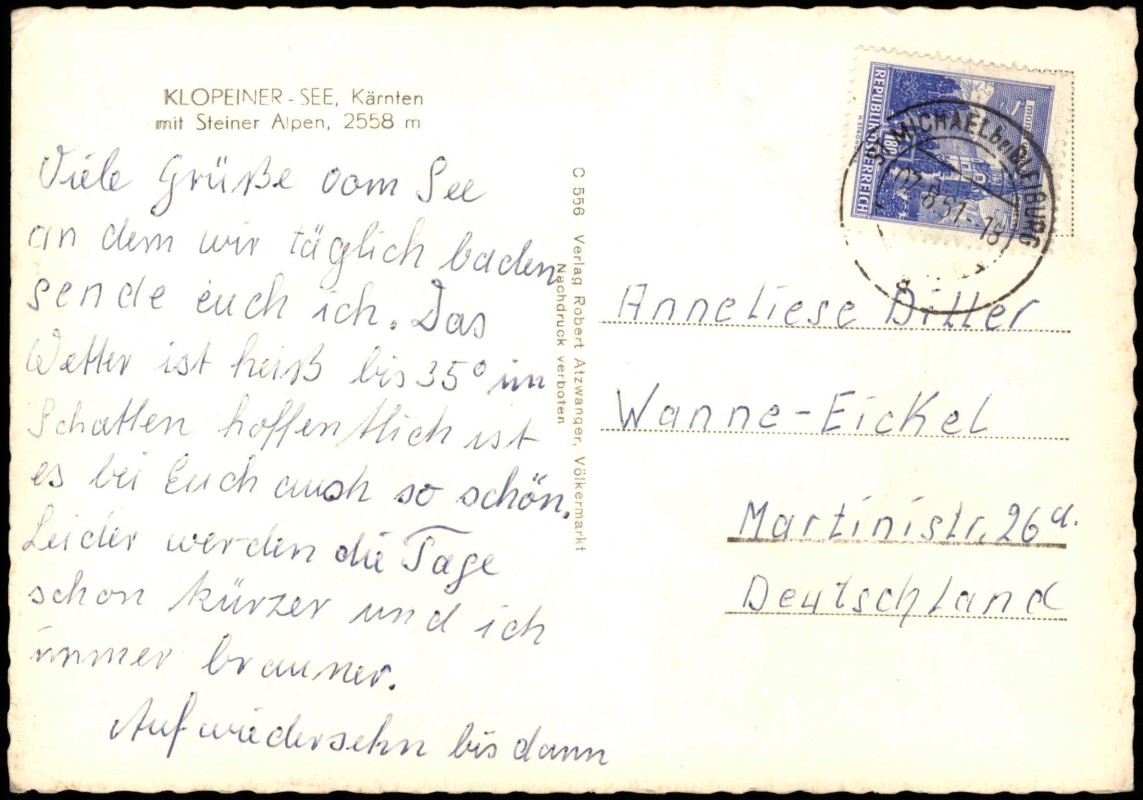 KLOPEINER-SEE, Kärnten
mit Steiner Alpen, 2558 m
Viele Grüße vom See
an dem wir täglich baden
sende euch ich. Das
Wetter ist heiß bis 35° im
Schatten hoffentlich ist
es bei Euch auch so schön.
Leider werden die Tage
schon kürzer und ich
immer brauner.
Auf wiedersehn bis dann
C 556 Verlag Robert Atzwanger, Völkermarkt
Nachdruck verboten
REPUBLIK ÖSTERREICH
ST. MICHAEL bei BLEIBURG
Anneliese Ditter
Wanne-Eickel
Martinistr. 26a.
Deutschland